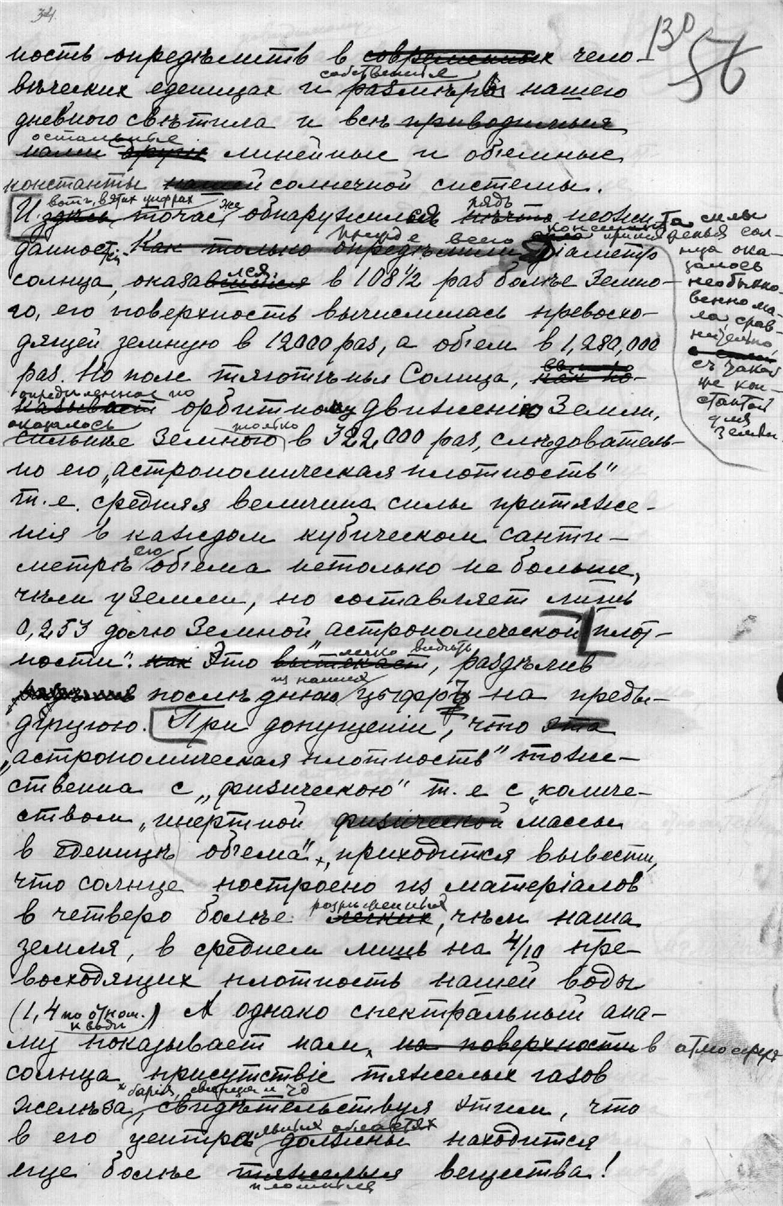 34
130
56
ность опредѣлить в современных чело
вѣческих еденицах и собственные размѣры нашего
дневного свѣтила и всѣ приводимыя
остальные
нами другие линейные и объемные
константы нашей солнечной системы.
вот, в этих цифрах же рядъ
И здѣсь тотчас обнаружился нѣчто неожи
данностей. Как только опредѣлили діаметр
прежде всего
солнца, оказавшійся в 108½ раз болѣе Земно-
го, его поверхность вычислилась превосхо-
дящей земную в 12000 раз, а объем в 1,280,000
раз. Но поле тяготѣнья Солнца, как по-
опредѣленное по
казывает орбитному движенію Земли,
оказалось только
сильнѣе Земного в 322,000 раз, слѣдователь-
но его „астрономическая плотность"
т. е. средняя величина силы притяже-
ния в каждом кубическом санти-
метрѣ его объема нетолько не больше,
чѣм у земли, но составляет лишь
0,253 долю Земной „астрономической плот-
ности". как Это вытекает легко видѣть, раздѣлив
из наших
послѣднюю цыфру на преды-
дущую. При допущеніи, что эта
„астрономическая плотность" тоже-
ственна с „физическою" т. е с „количе-
ством „инертной физической массы
в еденицѣ объема", приходится вывести,
что солнце построено из матеріалов
в четверо болѣе разрѣженных легких, чѣм наша
земля, в среднем лишь на 4/10 пре-
восходящих плотность нашей воды
(1,4 по отнош. к воды) А однако спектральный ана-
лиз показывает нам, на поверхности в атмосферѣ
солнца присутствіе тяжелых газов
бария, свинца и т д
желѣза, свидѣтельствуя этим, что
в его центральных областях должны находится
еще болѣе тяжелыя вещества!
плотные
та силы
притяженья сол-
нца ока-
залось
необыкно-
венно ма-
ла срав-
нительно
съ такой
же кон-
стантой
для
земли